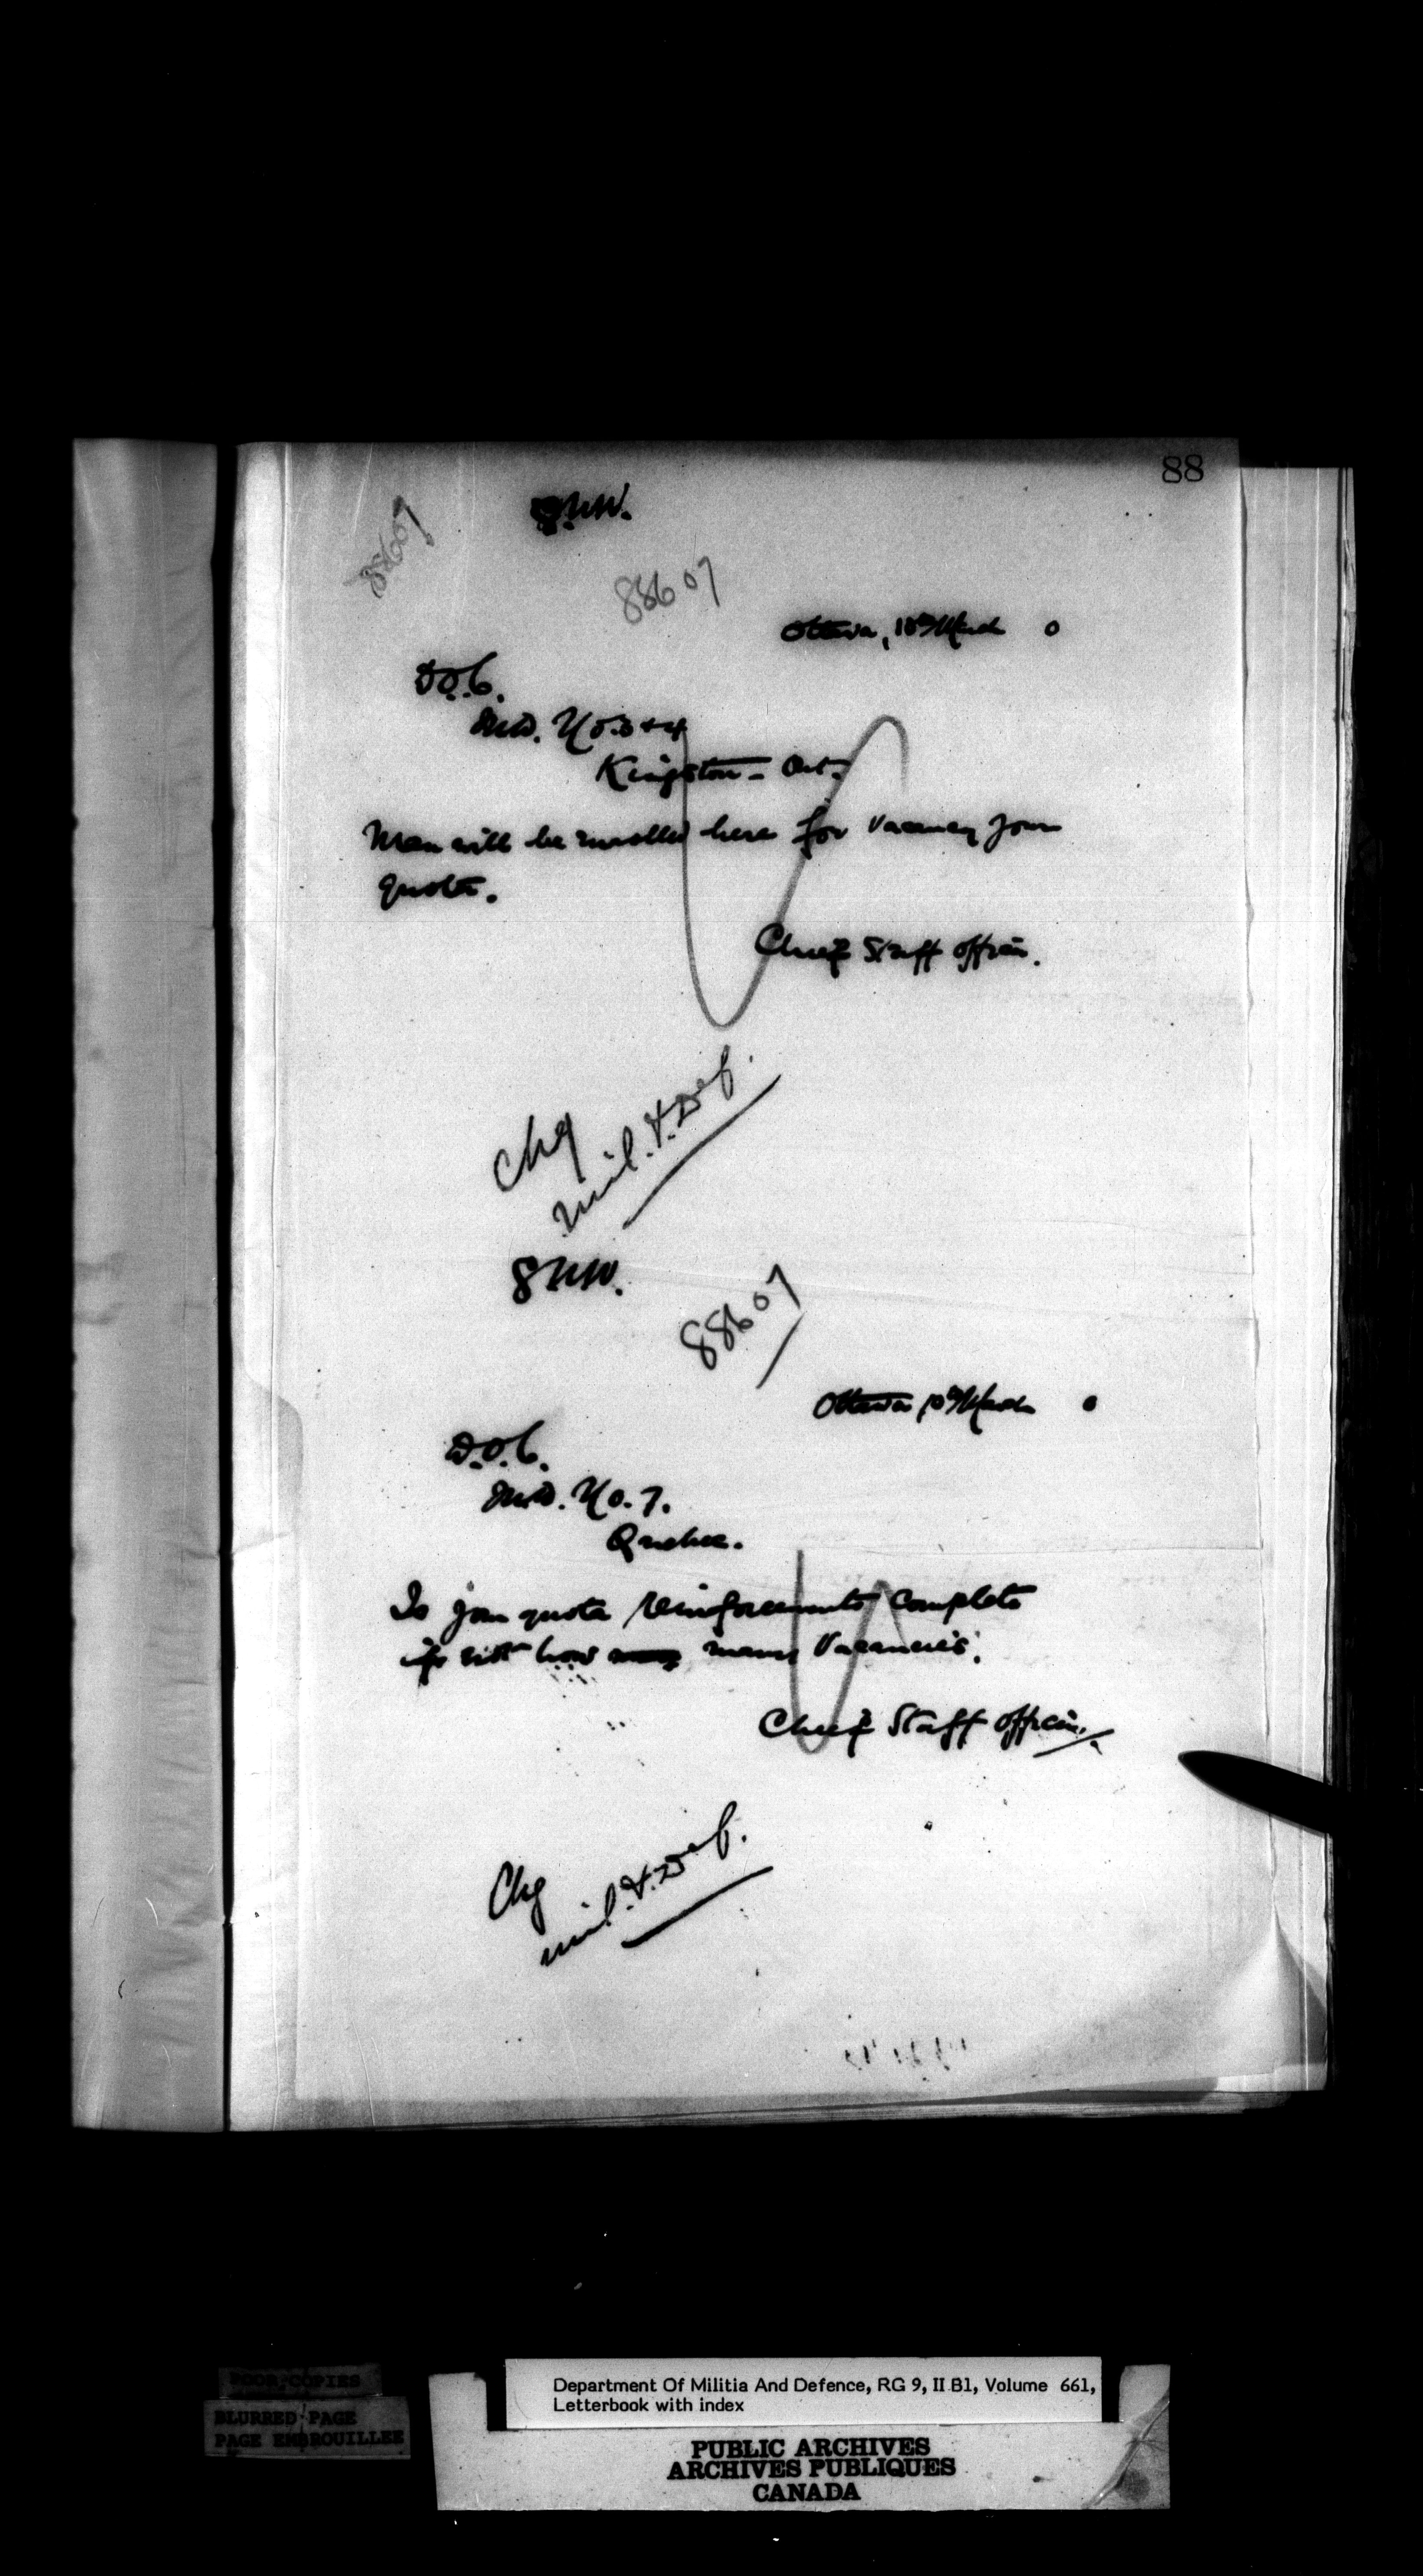 88
8 NW.
88607
88607
Ottawa, 10th March 0
D.O.C.
M.D. No. 3 & 4
Kingston - Ont.
Man will be enrolled here for vacancy your
quota.
Chief Staff officer.
Chg
Mil. & Def.
8 NW.
88607
Ottawa, 10th March 0
D.O.C.
M.D. No. 7.
Quebec.
Is your quota reinforcements complete
if not how many vacancies.
Chief Staff officer.
Chg
Mil. & Def.
POOR COPIES
BLURRED PAGE
PAGE EMBROUILLEE
Department Of Militia And Defence, RG 9, II B1, Volume 661,
Letterbook with index
PUBLIC ARCHIVES
ARCHIVES PUBLIQUES
CANADA